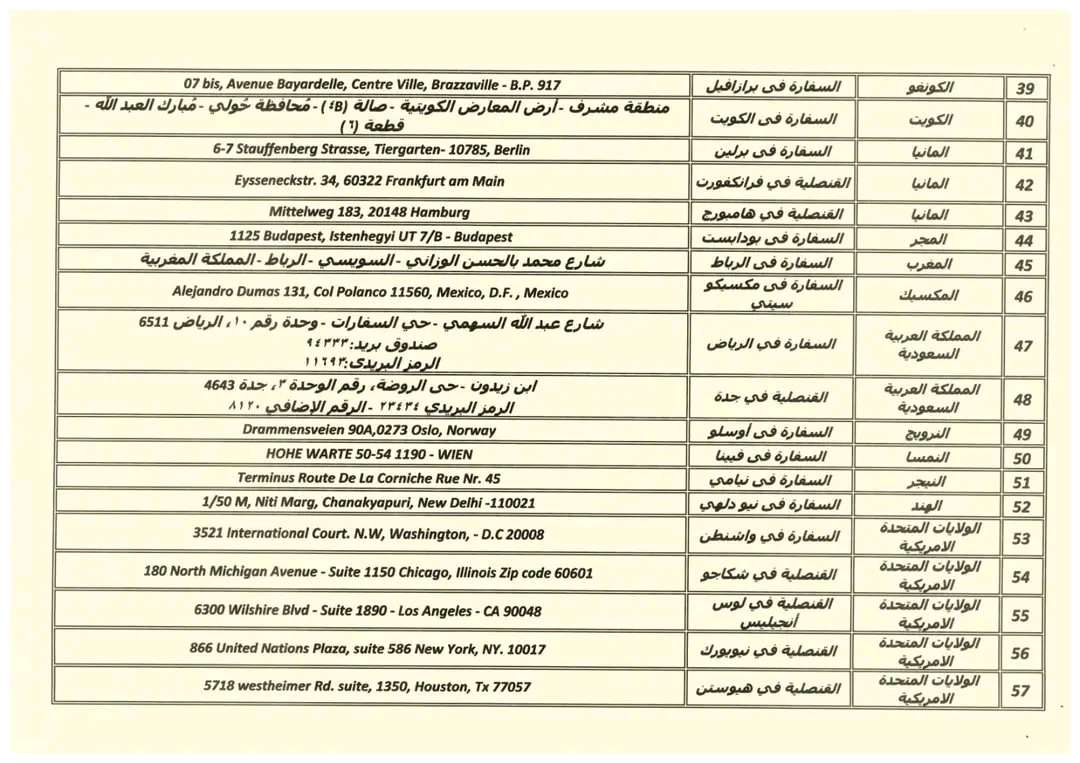 39 الكونغو السفارة في برازافيل 07 bis, Avenue Bayardelle, Centre Ville, Brazzaville - B.P. 917
40 الكويت السفارة فى الكويت منطقة مشرف - أرض المعارض الكويتية - صالة (٤B) - مُحافظة حُولي - مُبارك العبد الله -
قطعة (٦)
41 المانيا السفارة فى برلين 6-7 Stauffenberg Strasse, Tiergarten- 10785, Berlin
42 المانيا القنصلية في فرانكفورت Eysseneckstr. 34, 60322 Frankfurt am Main
43 المانيا القنصلية في هامبورج Mittelweg 183, 20148 Hamburg
44 المجر السفارة في بودابست 1125 Budapest, Istenhegyi UT 7/B - Budapest
45 المغرب السفارة فى الرباط شارع محمد بالحسن الوزاني - السويسي - الرباط - المملكة المغربية
46 المكسيك السفارة فى مكسيكو
سيتي Alejandro Dumas 131, Col Polanco 11560, Mexico, D.F. , Mexico
47 المملكة العربية
السعودية السفارة في الرياض شارع عبد الله السهمي - حي السفارات - وحدة رقم ١٠، الرياض 6511
صندوق بريد: ٩٤٣٣٣
الرمز البريدى: ١١٦٩٣
48 المملكة العربية
السعودية القنصلية في جدة ابن زيدون - حى الروضة، رقم الوحدة ٣، جدة 4643
الرمز البريدي ٢٣٤٣٤ - الرقم الإضافي ٨١٢٠
49 النرويج السفارة فى أوسلو Drammensveien 90A,0273 Oslo, Norway
50 النمسا السفارة فى فيينا HOHE WARTE 50-54 1190 - WIEN
51 النيجر السفارة في نيامي Terminus Route De La Corniche Rue Nr. 45
52 الهند السفارة فى نيو دلهي 1/50 M, Niti Marg, Chanakyapuri, New Delhi -110021
53 الولايات المتحدة
الامريكية السفارة في واشنطن 3521 International Court. N.W, Washington, - D.C 20008
54 الولايات المتحدة
الامريكية القنصلية في شكاجو 180 North Michigan Avenue - Suite 1150 Chicago, Illinois Zip code 60601
55 الولايات المتحدة
الامريكية القنصلية في لوس
أنجيليس 6300 Wilshire Blvd - Suite 1890 - Los Angeles - CA 90048
56 الولايات المتحدة
الامريكية القنصلية في نيويورك 866 United Nations Plaza, suite 586 New York, NY. 10017
57 الولايات المتحدة
الامريكية القنصلية في هيوستن 5718 westheimer Rd. suite, 1350, Houston, Tx 77057